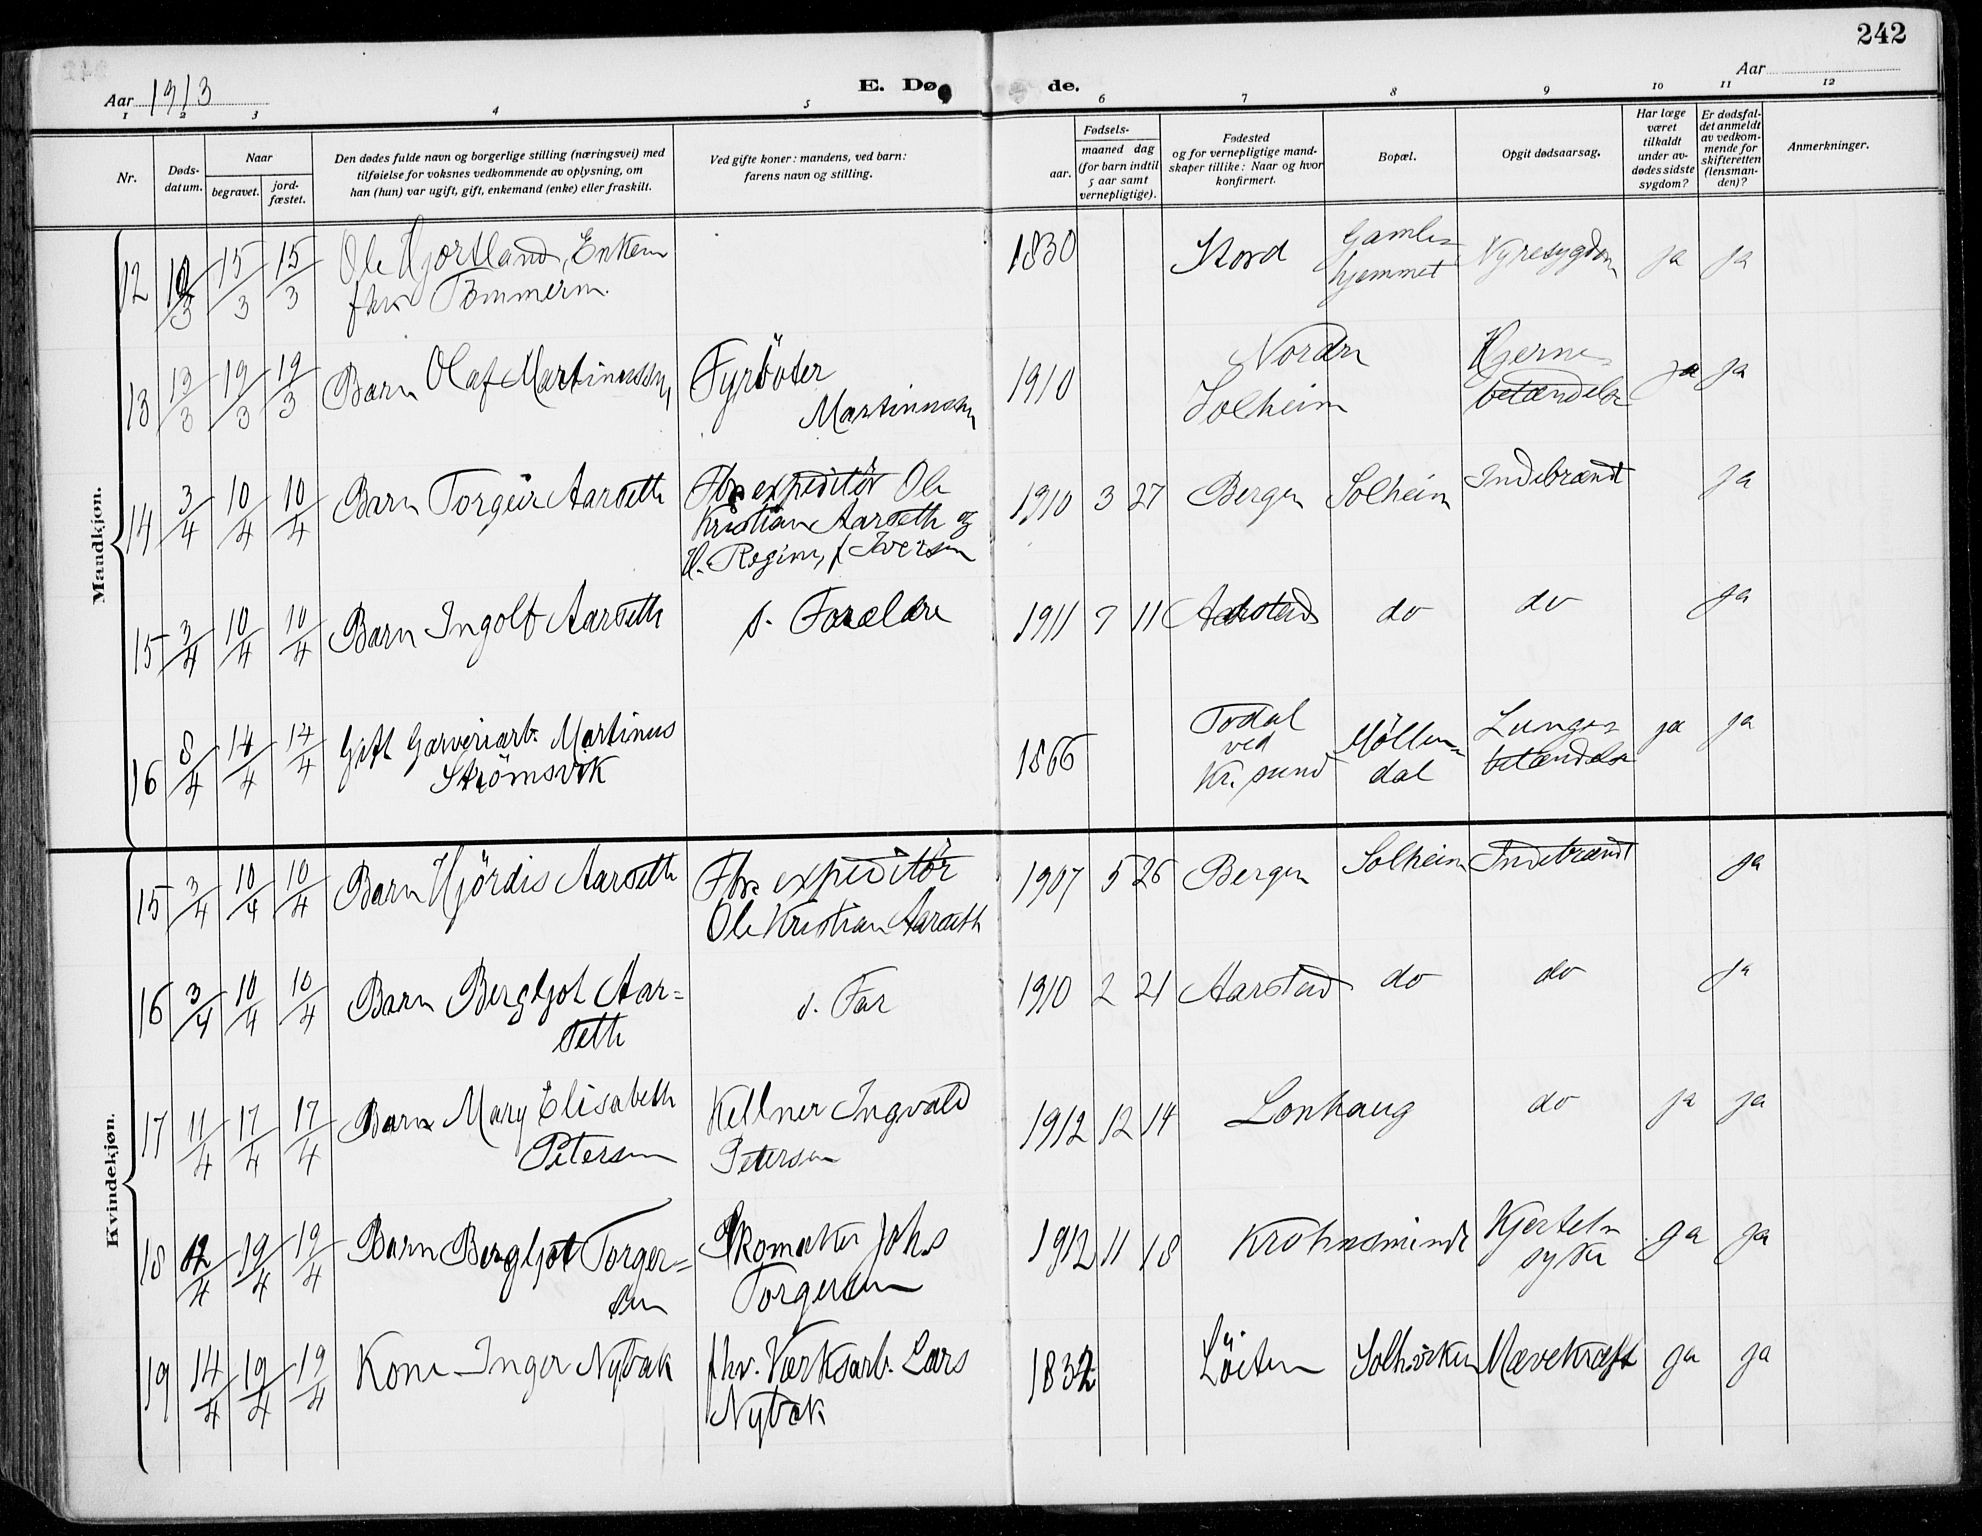 242
Aar 1913
E. Dø
de.
Aar
1 2 3 4 5 6 7 8 9 10 11 12
Nr.
Døds-
datum.
Naar
begravet.
jord-
fæstet.
Den dødes fulde navn og borgerlige stilling (næringsvei) med
tilføielse for voksnes vedkommende av oplysning, om
han (hun) var ugift, gift, enkemand (enke) eller fraskilt.
Ved gifte koner: mandens, ved barn:
farens navn og stilling.
Fødsels-
aar.
maaned dag
(for barn indtil
5 aar samt
vernepligtige).
Fødested
og for vernepligtige mand-
skaper tillike: Naar og hvor
konfirmert.
Bopæl.
Opgit dødsaarsag.
Har læge
været
tilkaldt
under av-
dødes sidste
sygdom?
Er dødsfal-
det anmeldt
av vedkom-
mende for
skifteretten
(lensman-
den)?
Anmerkninger.
Mandkjøn.
12 /3 15/3 15/3 Ole Hjortland, Enkem 1830 Stord Gamle- Nyresygdom ja ja
fhv. Tømmerm. hjemmet
13 13/3 19/3 19/3 Barn Olaf Martinussen, Fyrböter 1910 Nordre Hjerne- ja ja
Martinussen Solheim betændelse
14 3/4 10/4 10/4 Barn Torgeir Aarseth Fhv. expeditör Ole 1910 3 27 Bergen Solheim Indebrændt ja
Kristian Aarseth og
H. Regine, f Iversen
15 3/4 10/4 10/4 Barn Ingolf Aarseth s. Forældre 1911 7 11 Aarstad do do ja
16 8/4 14/4 14/4 Gift Garveriarb. Martinus 1866 Todal Møllen- Lunge- ja ja
Strømsvik ved dal betændelse
Kr. sund
Kvindekjøn.
15 3/4 10/4 10/4 Barn Hjördis Aarseth Fhv. expeditör 1907 5 26 Bergen Solheim Indebrændt ja
Ole Kristian Aarseth
16 3/4 10/4 10/4 Barn Bergljot Aar= s. Far 1910 2 21 Aarstad do do ja
seth
17 11/4 17/4 17/4 Barn Mary Elisabeth Kellner Ingvald 1912 12 14 Lonhaug do ja ja
Petersen Petersen
18 12/4 19/4 19/4 Barn Bergljot Torger= Skomaker Johs 1912 11 18 Krohnsminde Kjertel- ja ja
sen Torgersen syke
19 14/4 19/4 19/4 Kone Inger Nybak fhv. Værksarb. Lars 1832 Löiten Solhviken Mavekræft ja ja
Nybak